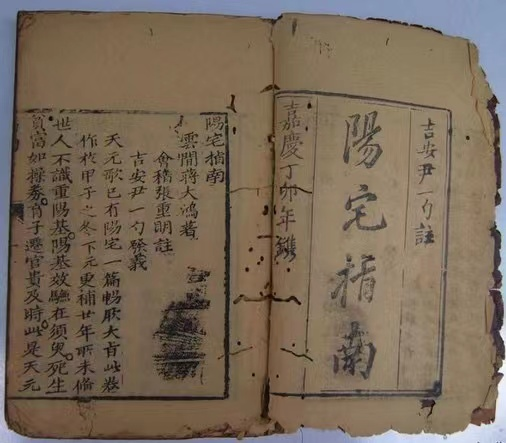 吉安尹一勺註
陽宅指南
嘉慶丁卯年鐫
陽宅指南
雲間蔣大鴻著
會稽張重明註
吉安尹一勺發義
天元歌已有陽宅一篇暢厥大旨此卷
作於甲子之冬下元更補廿年所未備
世人不識重陽基。陽基效驗在須臾。死生
貧富如操券。育子遷官貴及時。此是天元